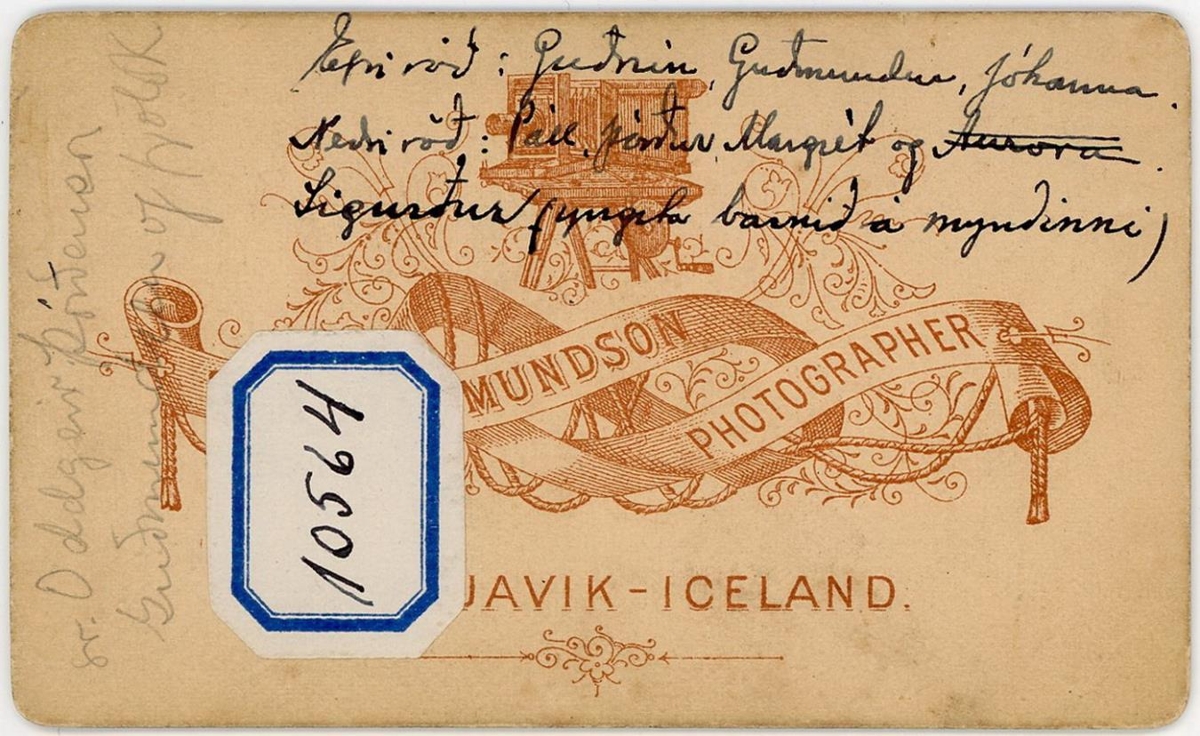 Efri röð: Guðrún, Guðmundur, Jóhanna.
Neðri röð: Páll, Þórður, Margrét og Aurora.
Sigurður (yngsta barnið á myndinni)
MUNDSON
PHOTOGRAPHER
JAVIK-ICELAND.
10564
sr. Oddgeir Þórðarson
Guðmundsen og fjölsk